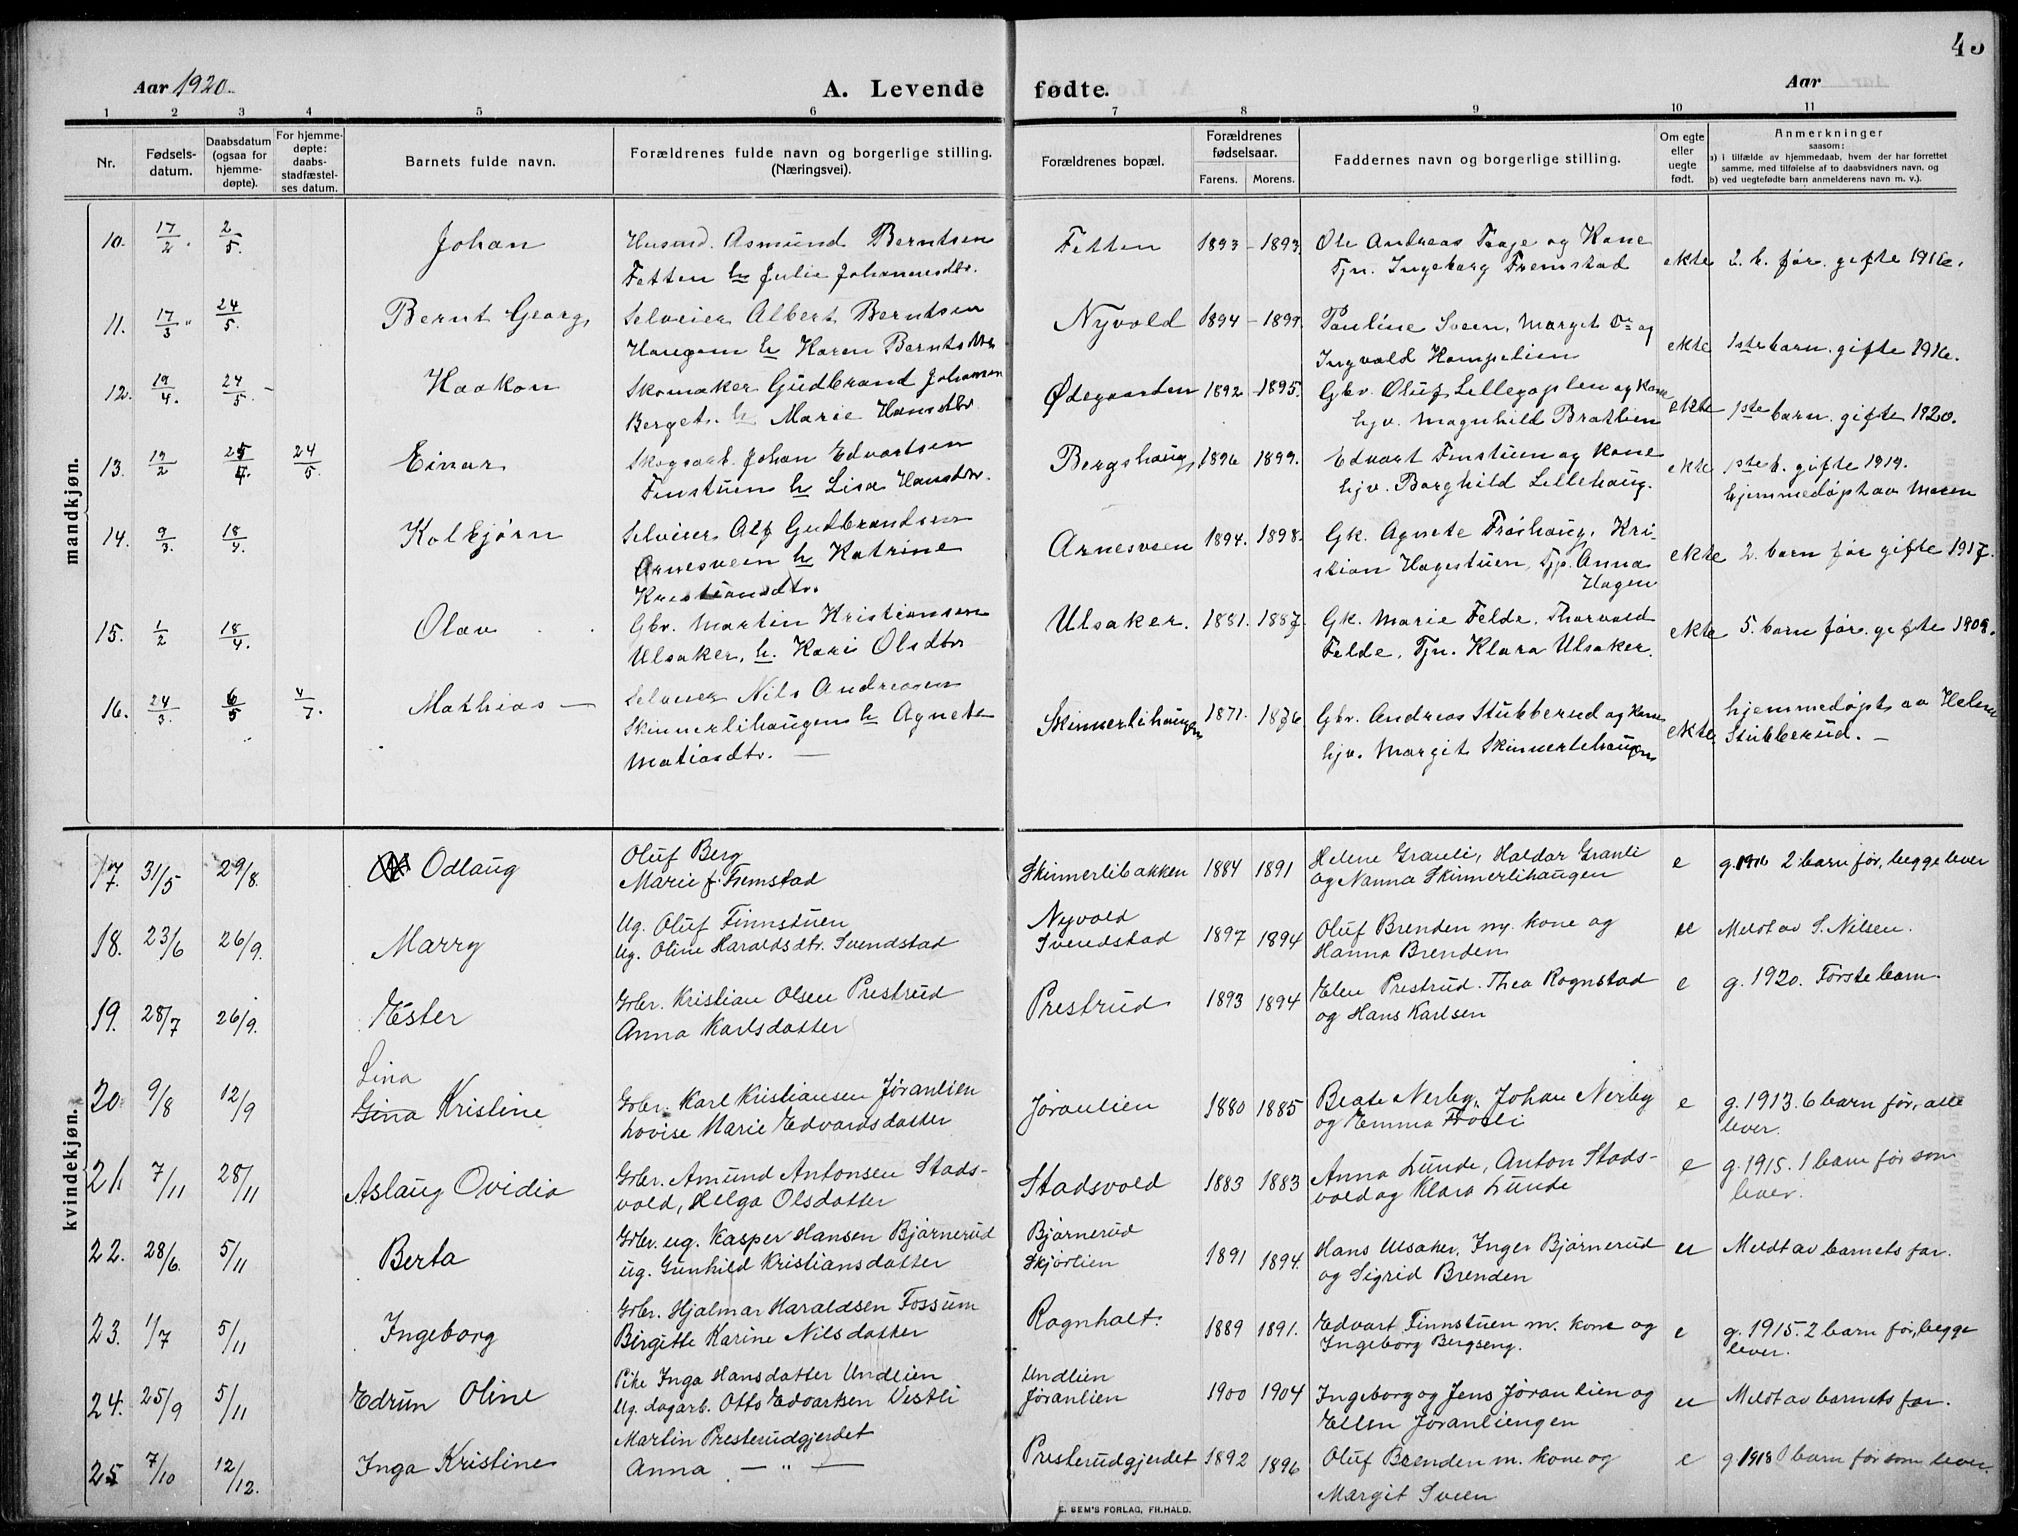 45
Aar 1920.
A. Levende fødte.
Aar
1 2 3 4 5 6 7 8 9 10 11
Nr.
Fødsels-
datum.
Daabsdatum
(ogsaa for
hjemme-
døpte).
For hjemme-
døpte:
daabs-
stadfæstel-
ses datum.
Barnets fulde navn.
Forældrenes fulde navn og borgerlige stilling.
(Næringsvei).
Forældrenes bopæl.
Forældrenes
fødselsaar.
Farens. Morens.
Faddernes navn og borgerlige stilling.
Om egte
eller
uegte
født.
Anmerkninger
saasom:
a) i tilfælde av hjemmedaab, hvem der har forrettet
samme, med tilføielse af to daabsvidners navn, og
b) ved uegtefødte barn anmelderens navn m. v.).
mandkjøn.
10. 17/2. 2/5. Johan Husmd. Asmund Berntsen Fetten 1893 - 1893. Ole Andreas Taaje og Kone ekte 2. b. før. gifte 1916.
Fetten h Julie Johannesdtr. Tjn. Ingeborg Fremstad
11. 17/3 24/5. Bernt Georg Selveier Albert Berntsen Nyvold 1894 - 1899. Pauline Sveen, Marget Do og ekte 1ste barn. gifte 1916.
Haugen h Karen Berntsdtr Ingvald Hompelien
12. 19/4. 24/5. - Haakon Skomaker Gudbrand Johansen Ødegaarden 1892 - 1895. Gbr. Oluf Lillegaplen og Kone ekte 1ste barn. gifte 1920.
Berget. h Marie Hansdtr hjv. Magnhild Bratlien
13. 19/2 25/4. 24/5 Einar Skogsarb. Johan Edvartsen Bergshaug 1896 1899. Edvart Finstuen og Kone ekte 1ste b. gifte 1919.
Finstuen h Lisa Hansdtr. hjv. Borghild Lillehaug. hjemmedøpt av Moren
14. 9/3. 18/4. Kolbjørn Selveier Alf Gudbrandsen Arnesveen 1894. 1898. Gk. Agnete Frøshaug, Kri- ekte 2. barn før gifte 1917.
Arnesveen h Katrine stian Hagestuen, Tjp. Anna
Kristiansdtr. Hagen
15. 1/2 18/4. Olav Gbr. Martin Kristiansen Ulsaker. 1881. 1887. Gk. Marie Felde. Thorvald ekte 5. barn før. gifte 1909.
Ulsaker, h. Kari Olsdtr Felde, Tjn. Klara Ulsaker.
16. 24/3. 6/5 4/7. Mathias - Selveier Nils Andreasen Skinnerlihaugen 1871. 1876 Gbr. Andreas Stubberud og Kone ekte. hjemmedøpt av Helene
Skinnerlihaugen h Agnete hjv. Margit Skinnerlihaugen Stubberud. -
Matiasdtr. -
kvindekjøn.
17. 31/5 29/8. Odlaug Oluf Berg Skinnerlibakken 1884 1891 Helene Granli, Haldor Granli e g. 1916 2 barn før, begge lever
Marie f. Fremstad og Nanna Skinnerlihaugen
18. 23/6 26/9. Marry Ug. Oluf Finnstuen Nyvold 1897 1894 Oluf Brenden m. kone og ue Meldt av S. Nilsen.
Ug. Oline Haraldsdtr. Svendstad Svendstad Hanna Brenden
19. 28/7 26/9. Ester Grbr. Kristian Olsen Prestrud Prestrud 1893 1894 Elen Prestrud. Thea Rognstad e g. 1920. Første barn.
Anna Karlsdatter og Hans Karlsen
Lina
20. 9/8 12/9 Gina Kristine Grbr. Karl Kristiansen Jøranlien Jøranlien 1880 1885 Beate Nerby, Johan Nerby e g. 1913. 6 barn før, alle
Lovise Marie Edvardsdatter og Emma Frosli lever.
21. 7/11 28/11 Aslaug Ovidia Grbr. Amund Antonsen Stads- Stadsvold 1883 1883 Anna Lunde, Anton Stads- e g. 1915. 1 barn før som
vold, Helga Olsdatter vold og Klara Lunde lever.
22. 28/6. 5/11 Berta Grbr. ug. Kasper Hansen Bjørnerud Bjørnerud 1891 1894. Hans Ulsaker, Inger Bjørnerud u Meldt av barnets far.
ug. Gunhild Kristiansdatter Skjørlien og Sigrid Brenden
23. 1/7 5/11 Ingeborg Grbr. Hjalmar Haraldsen Fossum Rognhalt. 1889 1891. Edvart Finnstuen m. kone og e g. 1915. 2 barn før, begge
Birgitte Karine Nilsdatter Ingeborg Bergseng. lever.
24. 25/9 5/11 Edrun Oline Pike Inga Hansdatter Undlien Undlien 1900 1904 Ingeborg og Jens Jøranlien og u Meldt av barnets far.
Ug. dagarb. Otto Edvartsen Vestli Jøranlien Ellen Jøranliengen
25 7/10 12/12. Inga Kristine Martin Presterudgjerdet Presterudgjerdet 1892 1896 Oluf Brenden m. kone og e g. 1918 1 barn før som lever.
Anna - " - Margit Sveen
E. SEM'S FORLAG, FR.HALD.